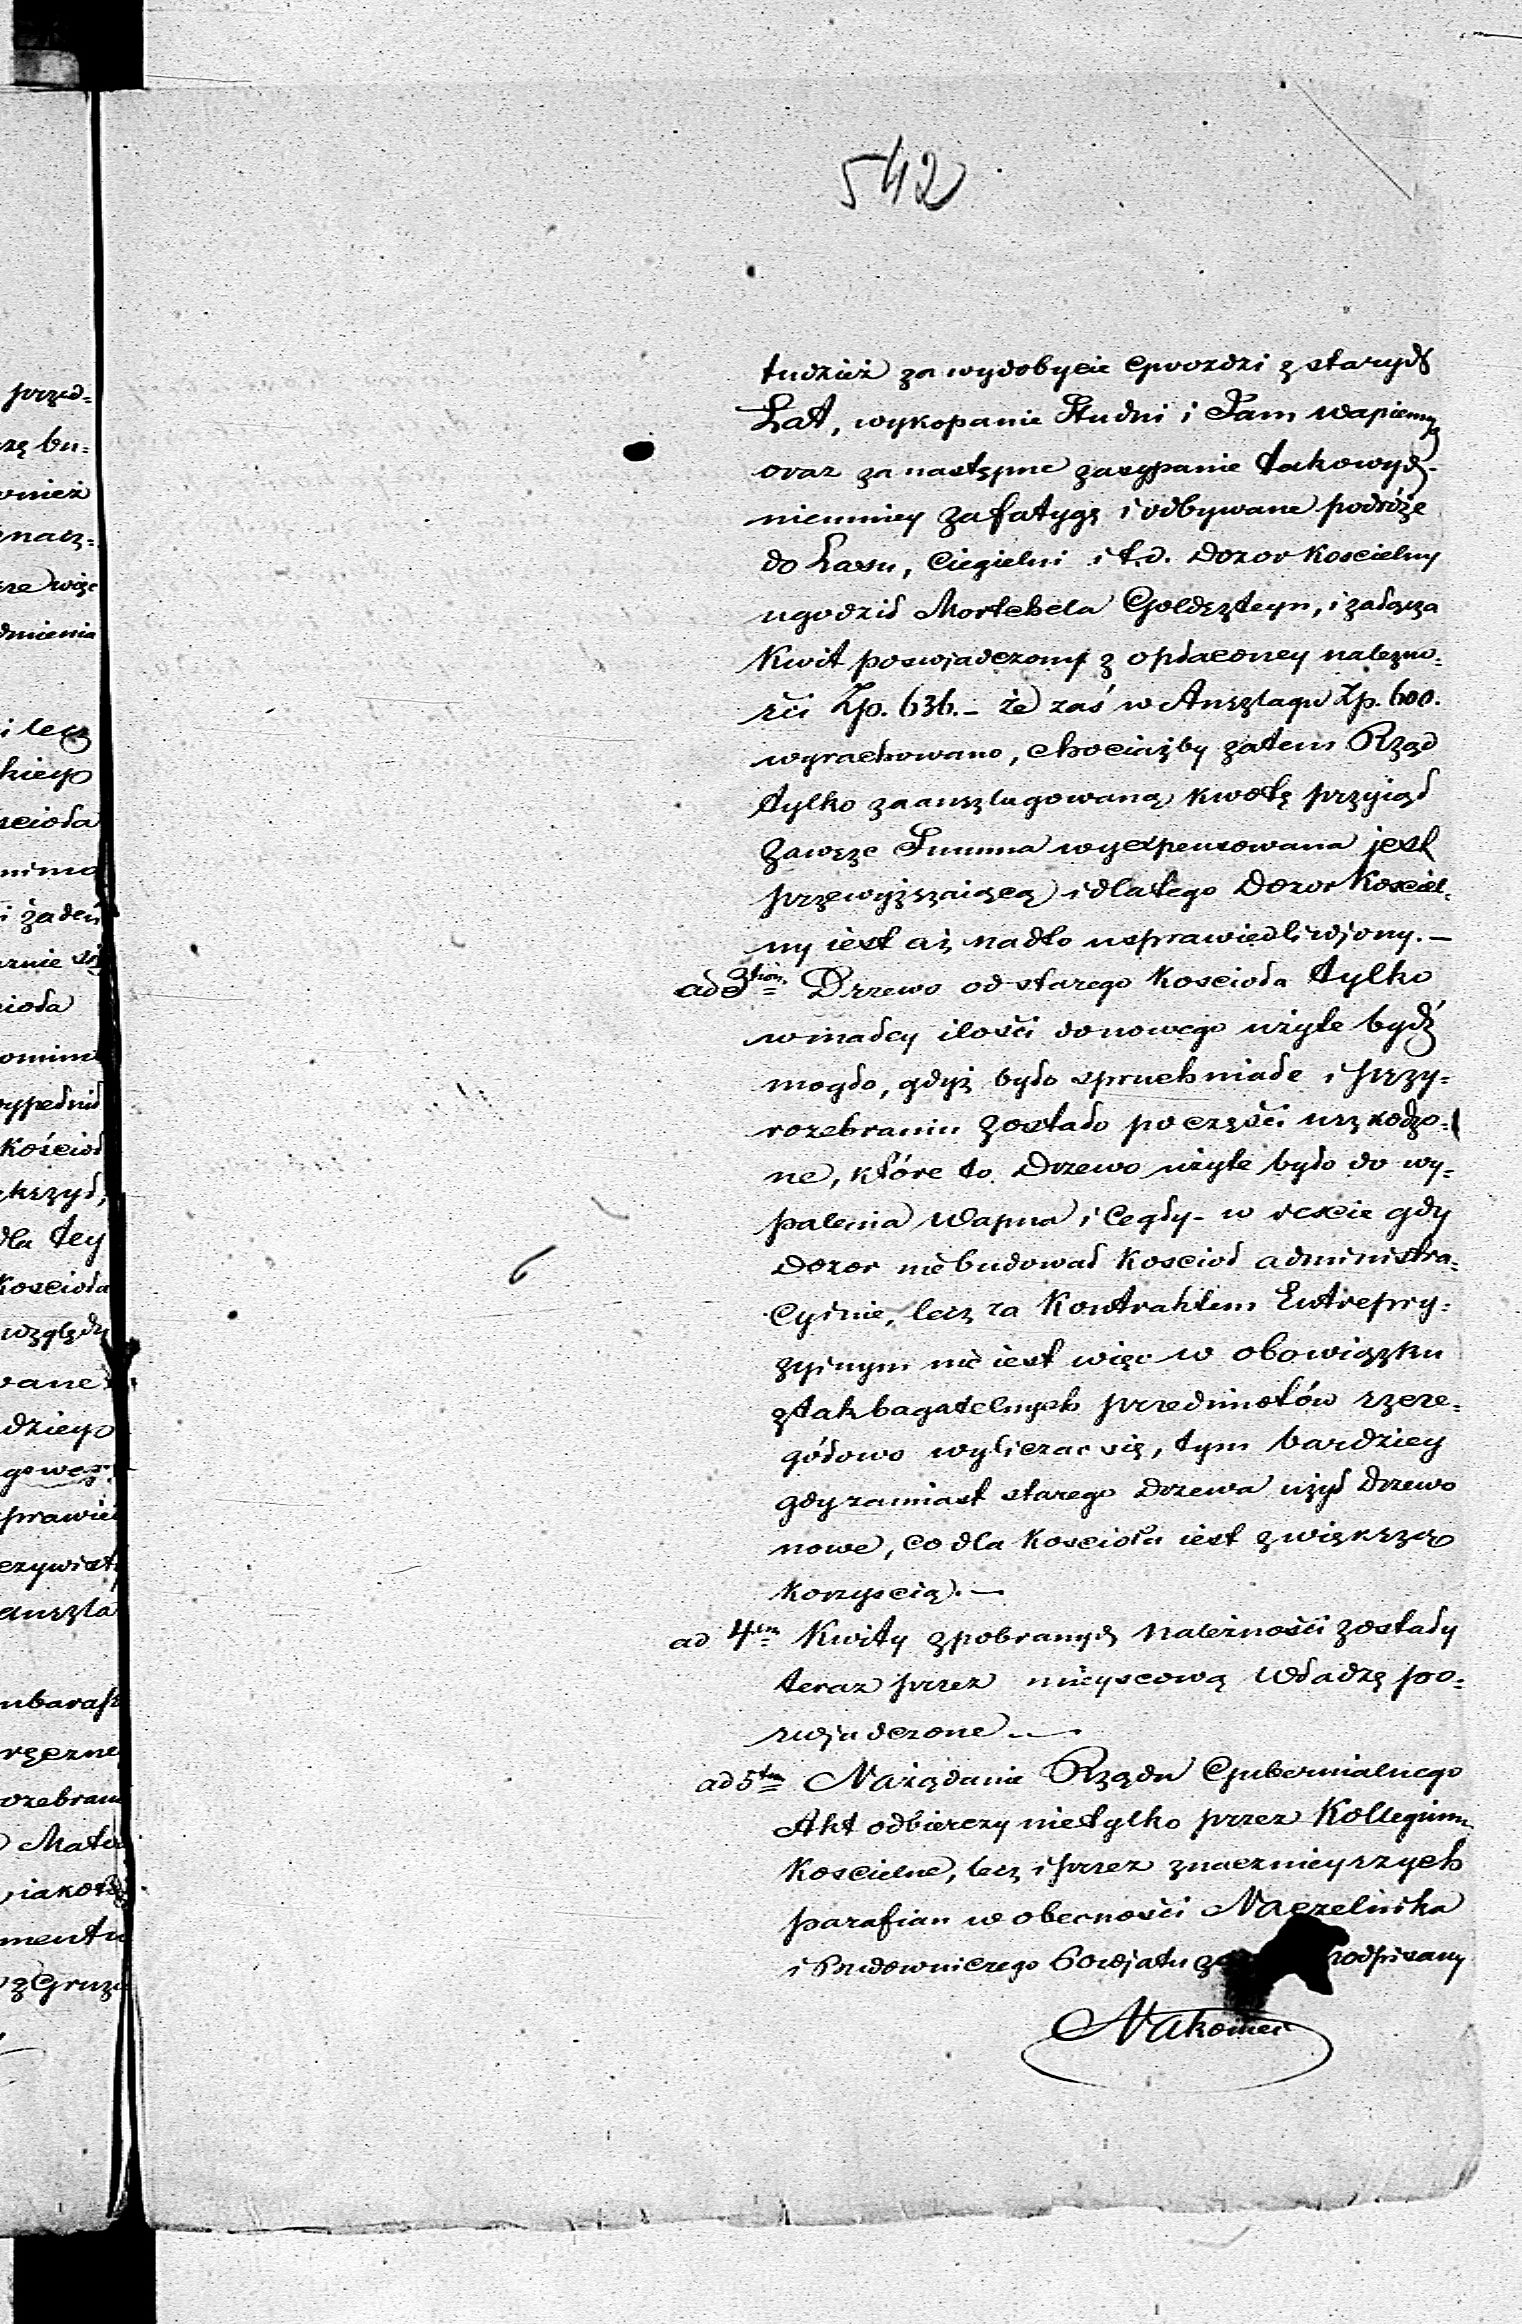 542
tudzież za wydobycie Gwozdzi z starych
Łat, wykopanie Studni i Jam wapiennych
oraz za następne zasypanie takowych
niemniey za fatygę i odbywane podróże
do Lasu, Cegielni i t.d. Dozor Koscielny
ugodził Mortchela Goldszteyn, i załącza
Kwit poswiadczony z opłaconey należno-
ści Zp. 636. – że zaś w Anszlagu Zp. 600.
wyrachowano, chociażby zatem Rząd
tylko zaanszlagowaną kwotę przyiął
zawsze Summa wyexpensowana jest
przewyższaiącą i dlatego Dozor Kościel-
ny iest aż nadto usprawiedliwiony. –
ad 3tium Drzewo od starego Koscioła tylko
w małey ilości do nowego użyte bydź
mogło, gdyż było spruchniałe i przy-
rozebraniu zostało po części uszkodzo-
ne, które to Drzewo użyte było do wy-
palenia Wapna i Cegły – w reście gdy
Dozor nie budował Kościoł administra-
cyinie, lecz za Kontraktem Entrepry-
zyinym nie iest więc w obowiązku
z tak bagatelnych przedmiotów szcze-
gółowo wyliczac się, tym bardziey
gdy zamiast starego Drzewa użył Drzewo
nowe, co dla Koscioła iest z większą
korzyscią. –
ad 4tum Kwity z pobranych należności zostały
teraz przez mieyscową Władzę po-
swiadczone –
ad 5tum Na żądanie Rządu Gubernialnego
Akt odbierczy nietylko przez Kollegium
Koscielne, lecz i przez znacznieyszych
parafian w obecności Naczelnika
i Budowniczego Powiatu podpisany